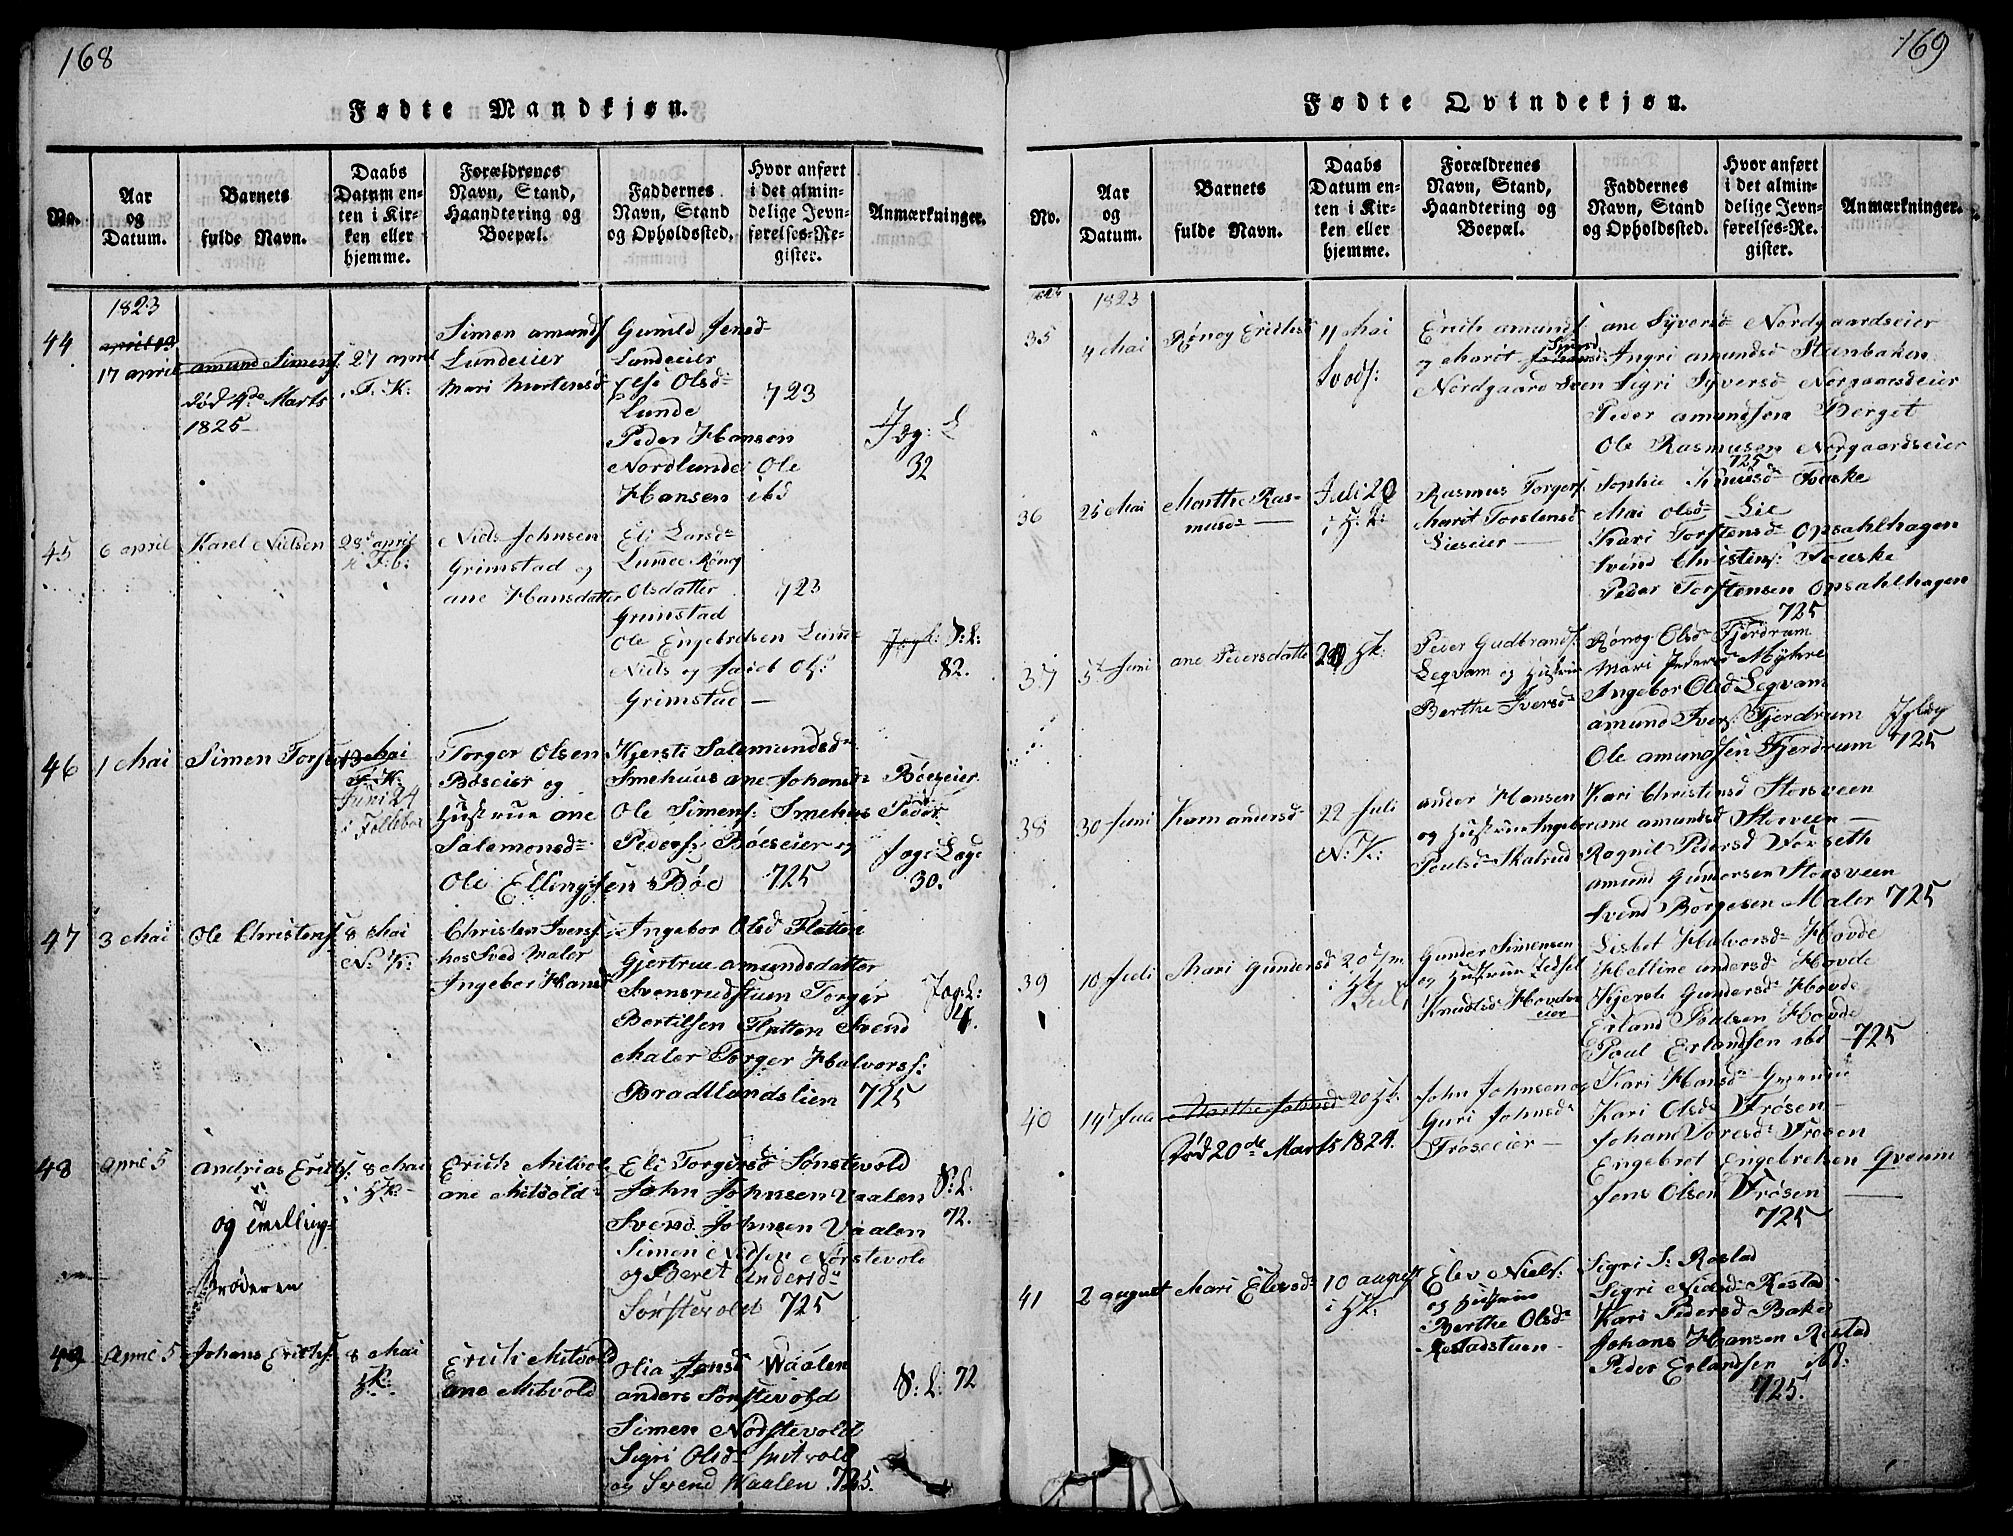 168
Fødte Mandkjøn.
No.
Aar
og
Datum.
Barnets
fulde Navn.
Daabs
Datum en-
ten i Kir-
ken eller
hjemme.
Forældrenes
Navn, Stand,
Haandtering og
Boepæl.
Faddernes
Navn, Stand
og Opholdssted.
Hvor anført
i det almin-
delige Jevn-
førelses-Re-
gister.
Anmærkninger.
1823
44
april 13
17 april
amund Simens:
død 4de Marts
1825
27 april
F: K:
Simen amunds
Lundeeier
Mari Mortensd
Gunild Jensd
Lundeeier
Else Olsd
Lunde
Peder Hansen
Nordlunde Ole
Hansen ibd
723
Jog: L
32
45
6 april
Karel Nielsen
28 april
i F: b:
Niels Johnsen
Grimstad og
ane Hansdatter
Eli Larsd
Lunde Rønog
Olsdatter
Grimstad
Ole Engebretsen Lunde
Niels og Jacob Ols:
Grimstad
723
J: L:
82.
46
1 Mai
Simen Torgers
13 Mai
F: K:
Juni 24
i Follebo
Torger Olsen
Bøeseier og
Hustrue ane
Salamonsd
Kjersti Salemundsd
Smehuus ane Johansd Bøeseier
Ole Simens: Smehus Peder
Peders: Bøeseier og
Ole Ellingsen Bøe 725
Jog: Log:
30.
47
3 Mai
Ole Christens:
8 Mai
N: K:
Christen Ivers:
hos Sved Maler
Ingebor Hansd
Ingebor Olsd Flatten
Gjertrue amundsdatter
Svensrudstuen Torger
Bertilsen Flatten Svend
Maler Torger Halvors:
Bradtlundslien 725
Jog: L:
4.
48
April 5
Andrias Erichs:
og
Brøderen
8 Mai
i H:K:
Erich Mitvold
ane Mitvold
Eli Torgersd Sønstevold
John Johnsen Vaalen
Svend Johnsen Vaalen
Simen Nielsen Nørstevold
og Beret Andersd
Sønstevold 725
S: L:
72.
49
April 5
Johans Erichs:
8 Mai
H:K:
Erich Mitvold
ane Mitvold
Olia Jensd Waalen
anders Sønstevold
Simen Nørstevold
Sigri Olsd Mitvold
og Svend Waalen 725.
S: L: 72
169
Fødte Qvindekjøn.
No.
Aar
og
Datum.
Barnets
fulde Navn.
Daabs
Datum en-
ten i Kir-
ken eller
hjemme.
Forældrenes
Navn, Stand,
Haandtering og
Boepæl.
Faddernes
Navn, Stand
og Opholdssted.
Hvor anført
i det almin-
delige Jevn-
førelses-Re-
gister.
Anmærkninger.
1823
35
4 Mai
Rønog Erichsd
11 Mai
Erich amunds
og Marit
Nordgaard Sven
ane Syversd Nordgaardseier
Ingri amundsd Stenbaken
Sigri Syversd Norgaardseier
Peder amundsen Berget
Ole Rasmusen Norgaardseier
725
36
25 Mai
Marthe Ras-
musd
Juli 20
i H: K:
Rasmus Torgers:
Marit Torstensd
Lieseier
Sophie Knudsd Fouske
Mai Olsd Lie
Kari Torstensd Opsahlhagen
Svend Christens: Fouske
Peder Torstensen Opsahlhagen
725
37
5 Juni
ane Pedersdatter
29 H:k:
Peder Gudbrands:
Legvam og Hustrue
Berthe Iversd
Rønog Olsd Fjerdrum
Mari Pedersd Myhre
Ingebor Olsd Legvam
amund Ivers: Fjerdrum
Ole amundsen Fjerdrum 725
38
30 Juni
Karn andersd
22 Juli
N: K:
ander Hansen
og Hustrue Ingebor
Poulsd Skalrud
Kari Christensd Storsveen
ane amundsd Storveen
Ragnil Pedersd Vorseth
amund Gundersen Storsveen
Svend Borgesen Maler 725
39
10 Juli
Mari Gundersd
20
i H:k
Juli
Gunder Simensen
og Hustrue Sidsel
Knudsd Hovdes
eier
Lisbet Halvorsd Hovde
Helline andersd Hovde
Kjersti Gundersd Hovde
Erland Poulsen Hovde
Poul Erlandsen ibd 725
40
14 Juli
Marthe Johnsd
Død 20de Marts 1824.
20 H:k:
John Johnsen og
Guri Johnsd
Frøseeier
Kari Hansd
Kari Olsd Frøsen
Johan Toresd Frøsen
Engebret Engebretsen Qveum
Jens Olsen Frøsen
725
41
2 august
Mari Elevsd
10 august
i H:k:
Elev Niels:
og Hustrue
Berthe Olsd
Røstadstuen
Sigri S: Røstad
Sigri Nielsd Røstad
Kari Pedersd Bake
Johans Hansen Røstad
Peder Erlandsen ibd:
725.